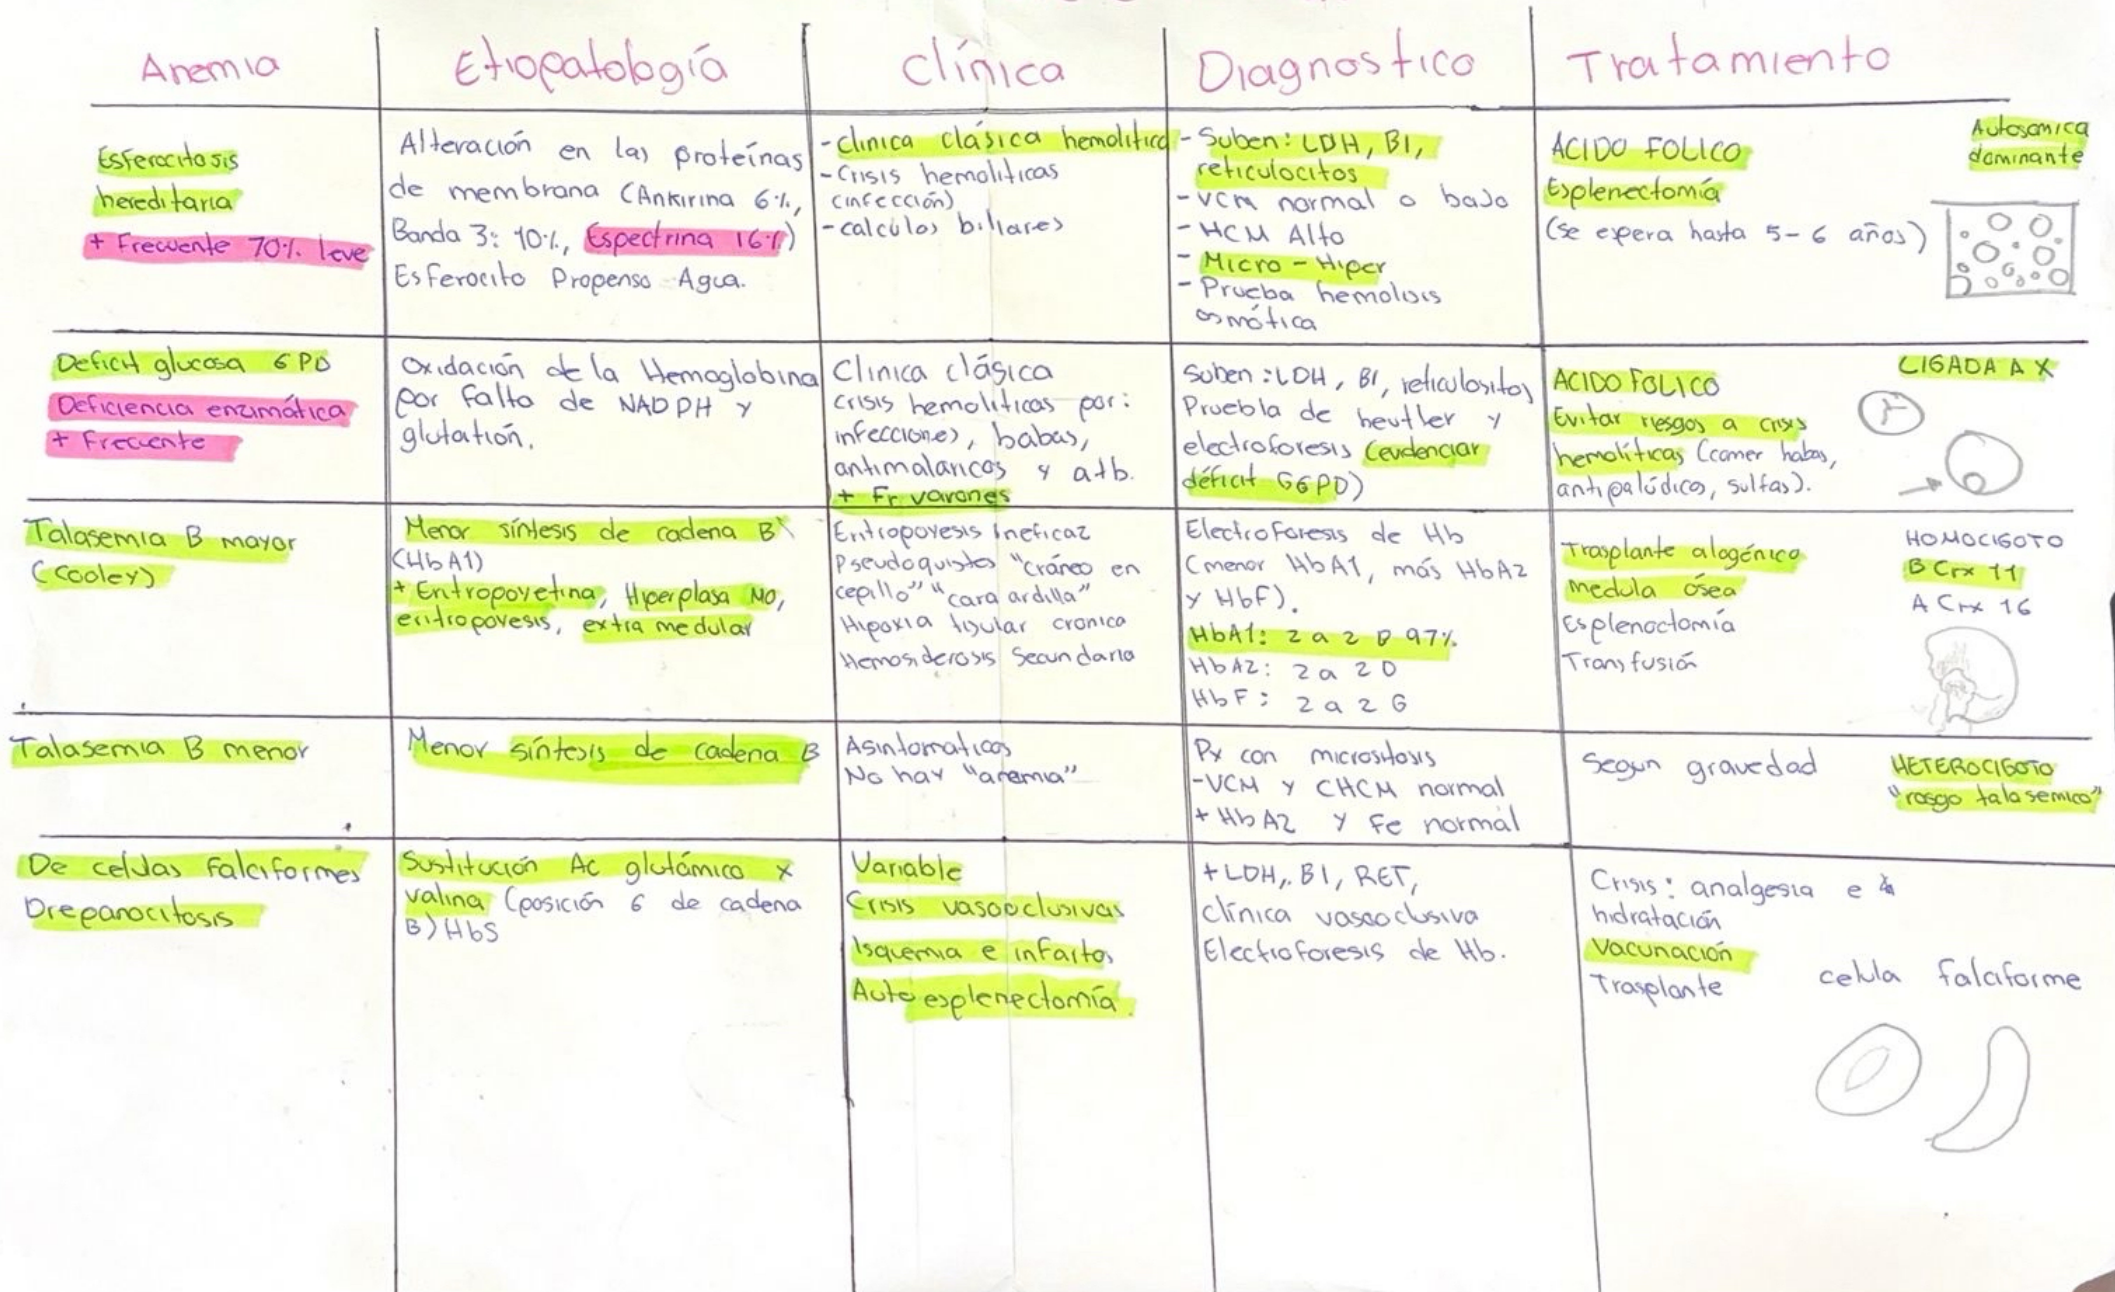 Anemia
Etiopatología
Clínica
Diagnostico
Tratamiento
Esferocitosis
hereditaria
+ Frecuente 70% leve
Alteración en las proteínas
de membrana (Ankirina 6%,
Banda 3: 10%, Espectrina 16%)
Esferocito Propenso Agua.
-clinica clásica hemolitica
-Crisis hemoliticas
(infección)
-calculos biliares
- Suben: LDH, BI,
reticulocitos
- VCM normal o bajo
- HCM Alto
- Micro-Hiper
- Prueba hemolisis
osmótica
ACIDO FOLICO
Esplenectomía
(se espera hasta 5-6 años)
Autosomica
dominante
Deficit glucosa 6PD
Deficiencia enzimática
+ Frecuente
Oxidación de la Hemoglobina
por falta de NADPH y
glutatión.
Clinica clásica
crisis hemoliticas por:
infecciones, babas,
antimalaricos y atb.
+ Fr varones
Suben: LDH, BI, reticulositos
Pruebla de heutler y
electroforesis (evidenciar
déficit G6PD)
ACIDO FOLICO
Evitar riesgos a crisis
hemolíticas (comer habas,
antipalúdicos, sulfas).
LIGADA A X
Talasemia B mayor
(Cooley)
Menor síntesis de cadena B
(HbA1)
+ Entropoyetina, Hiperplasa MO,
eritropoyesis, extra medular
Entropoyesis Ineficaz
Pseudoquistes "cráneo en
cepillo" "cara ardilla"
Hipoxia tisular cronica
Hemosiderosis Secundaria
Electroforesis de Hb
(menor HbA1, más HbA2
y HbF).
HbA1: 2 a 2 B 97%.
HbA2: 2 a 2 D
HbF: 2 a 2 G
Trasplante alogénico
medula ósea
Esplenoctomía
Transfusión
HOMOCIGOTO
B Crx 11
A Crx 16
Talasemia B menor
Menor síntesis de cadena B
Asintomaticos
No hay "anemia"
Px con micrositosis
-VCM y CHCM normal
+ HbA2 y Fe normal
Segun gravedad
HETEROCIGOTO
"rasgo talasemico"
De celulas Falciformes
Drepanocitosis
Sustitución Ac glutámico x
valina (posición 6 de cadena
B) HbS
Variable
Crisis vasooclusivas
Isquemia e infartos
Auto esplenectomía.
+ LDH, BI, RET,
clínica vasooclusiva
Electroforesis de Hb.
Crisis: analgesia e
hidratación
Vacunación
Trasplante
celula falciforme